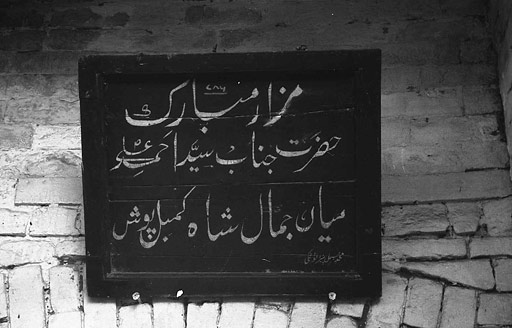 ۷۸۶
مزار مبارک
حضرت جناب سیّد احمد علی
میاں جمال شاہ کمبل پوش